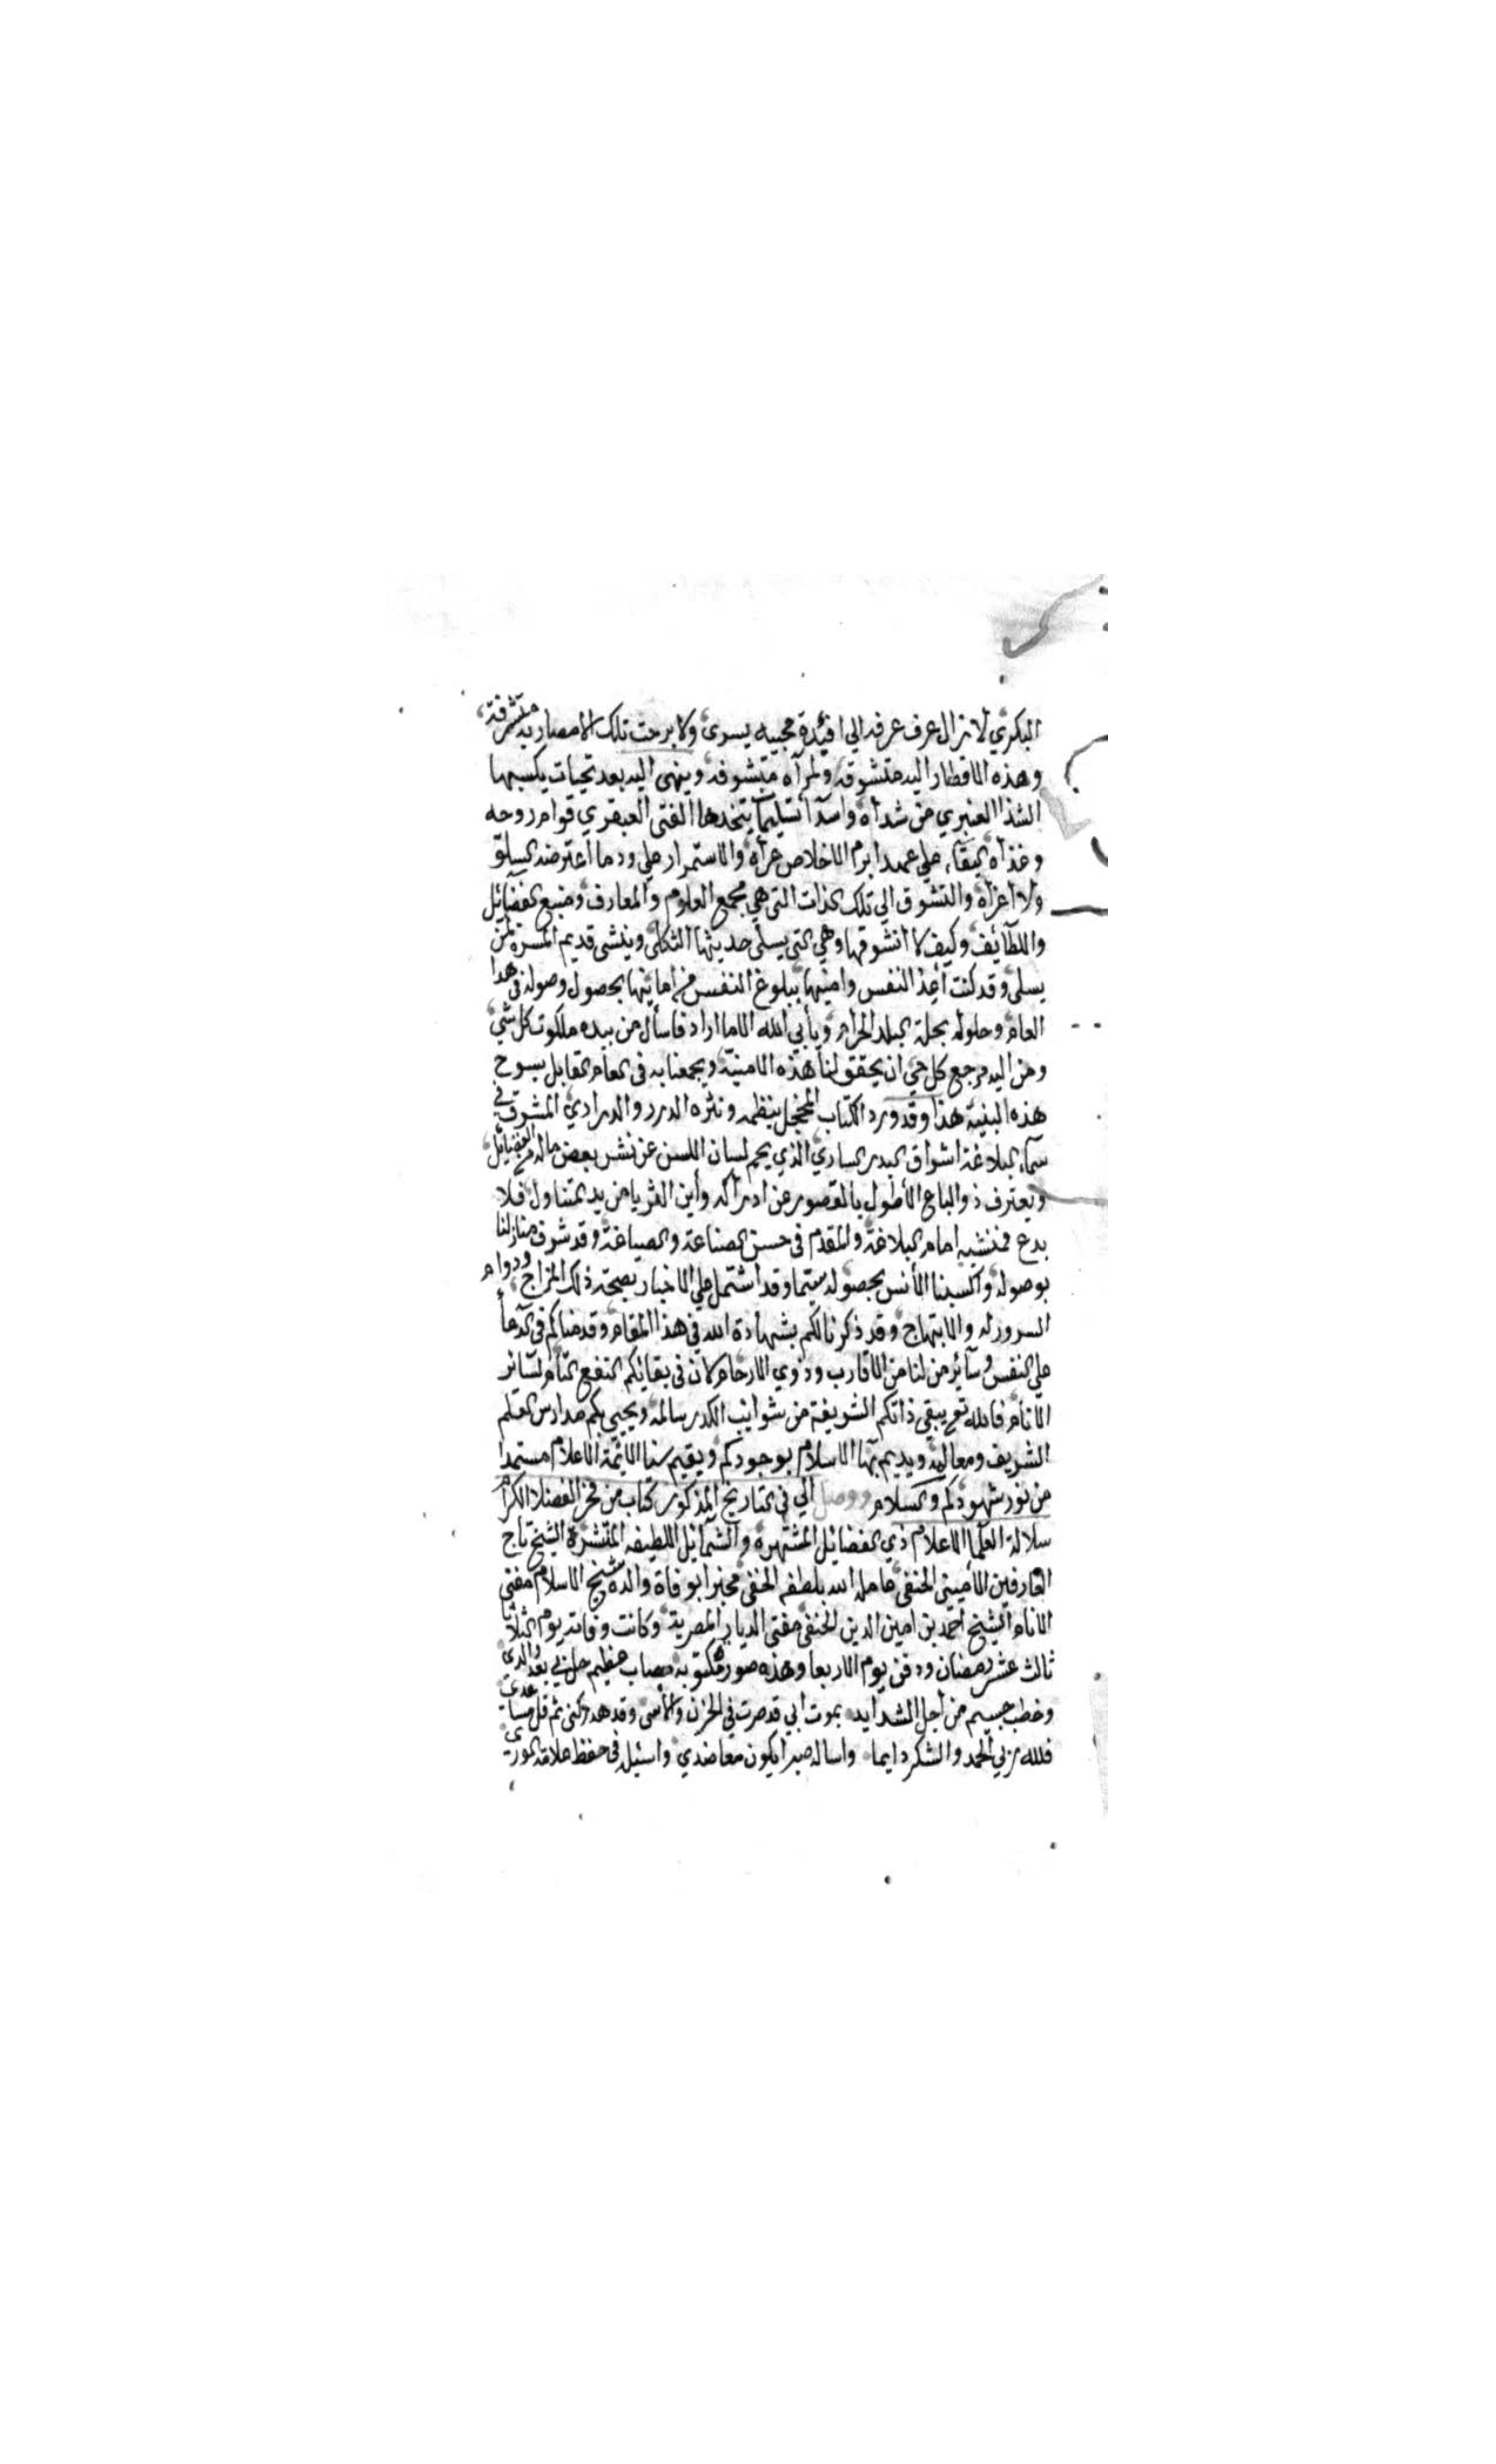 البكري لا زال عرف عرفه الي افئدة محبيه يسري ولا برحت تلك الامصار به مشرفة
وهذه الاقطار اليه متشوقه ولمرآه متشوفه وينهى اليه بعد تحيات يكسبها
الشذا العنبري من شذاه واسدا تسليمات يتخدها الفتى العبقري قوام روحه
وغذاه البقاء علي عهد ابرم الاخلاص عراه والاستمرار علي ود ما اعترضه السلو
ولا عراه والتشوق الي تلك الذات التي هي مجمع العلوم والمعارف ومنبع الفضائل
واللطائف وكيف لا اتشوقها وهي التي يسلى حديثها الثكلى وينشى قديم المسرة لمن
يسلى وقد كنت اعد النفس وامنيها ببلوغ النفس من امانيها بحصول وصوله في هذا
العام وحلوله بجلة البلد الحرام ويأبي الله الا ما اراد فاسأل من بيده ملكوت كل شي
ومن اليه مرجع كل حي ان يحقق لنا هذه الامنية ويجمعنا به في العام القابل بسوح
هذه البنية هذا وقد ورد الكتاب المخجل بنظمه ونثره الدرر والدراري المشوق في
سماء البلاغة اشواق البدر الساري الذي يحم لسان اللسن عن نشر بعض ماله من الفضائل
ويعترف ذو الباع الأطول بالقصور عن ادراكه وأين الثريا من يد المتناول فلا
بدع فمنشيه امام البلاغة والمقدم في حسن الصناعة والصياغة وقد شرف منازلنا
بوصوله واكسبنا الأنس بحصوله سيما وقد اشتمل علي الاخبار بصحة ذلك المزاج ودوام
السرور له والابتهاج وقد ذكرنا لكم بشهادة الله في هذا المقام وقدمناكم في الدعأ
علي النفس وسآئر من لنا من الاقارب وذوي الارحام لان في بقائكم النفع التام لسائر
الأنام فالله تع يبقي ذاتكم الشريفة من شوائب الكدر سالمه ويحيي بكم مدارس العلم
الشريف ومعالمه ويديم بهآ الاسلام بوجودكم ويقيم سنا الائمة الاعلام مستمدا
من نور شهودكم والسلام ووصل الي في التاريخ المذكور كتاب من فخر الفضلا الكرام
سلالة العلما الاعلام ذي الفضائل المشتهره والشمائل اللطيفه المنتشرة الشيخ تاج
العارفين الأميني الحنفي عامله الله بلطفه الخفي مخبرا بوفاة والده شيخ الاسلام مفتى
الانام الشيخ احمد بن امين الدين الحنفي مفتي الديار المصرية وكانت وفاته يوم الثلاثا
ثالث عشر رمضان ودفن يوم الاربعا وهذه صورة مكتوبه مصاب عظيم حل بي بعد والدي
وخطب جسيم من أجل الشدايد بموت ابي قد صرت في الحزن والأسى وقد هد ركني ثم قل مساعدي
فلله ربي الحمد والشكر دايما واساله صبرا يكون معاضدي واسئله في حفظ علامة الورى